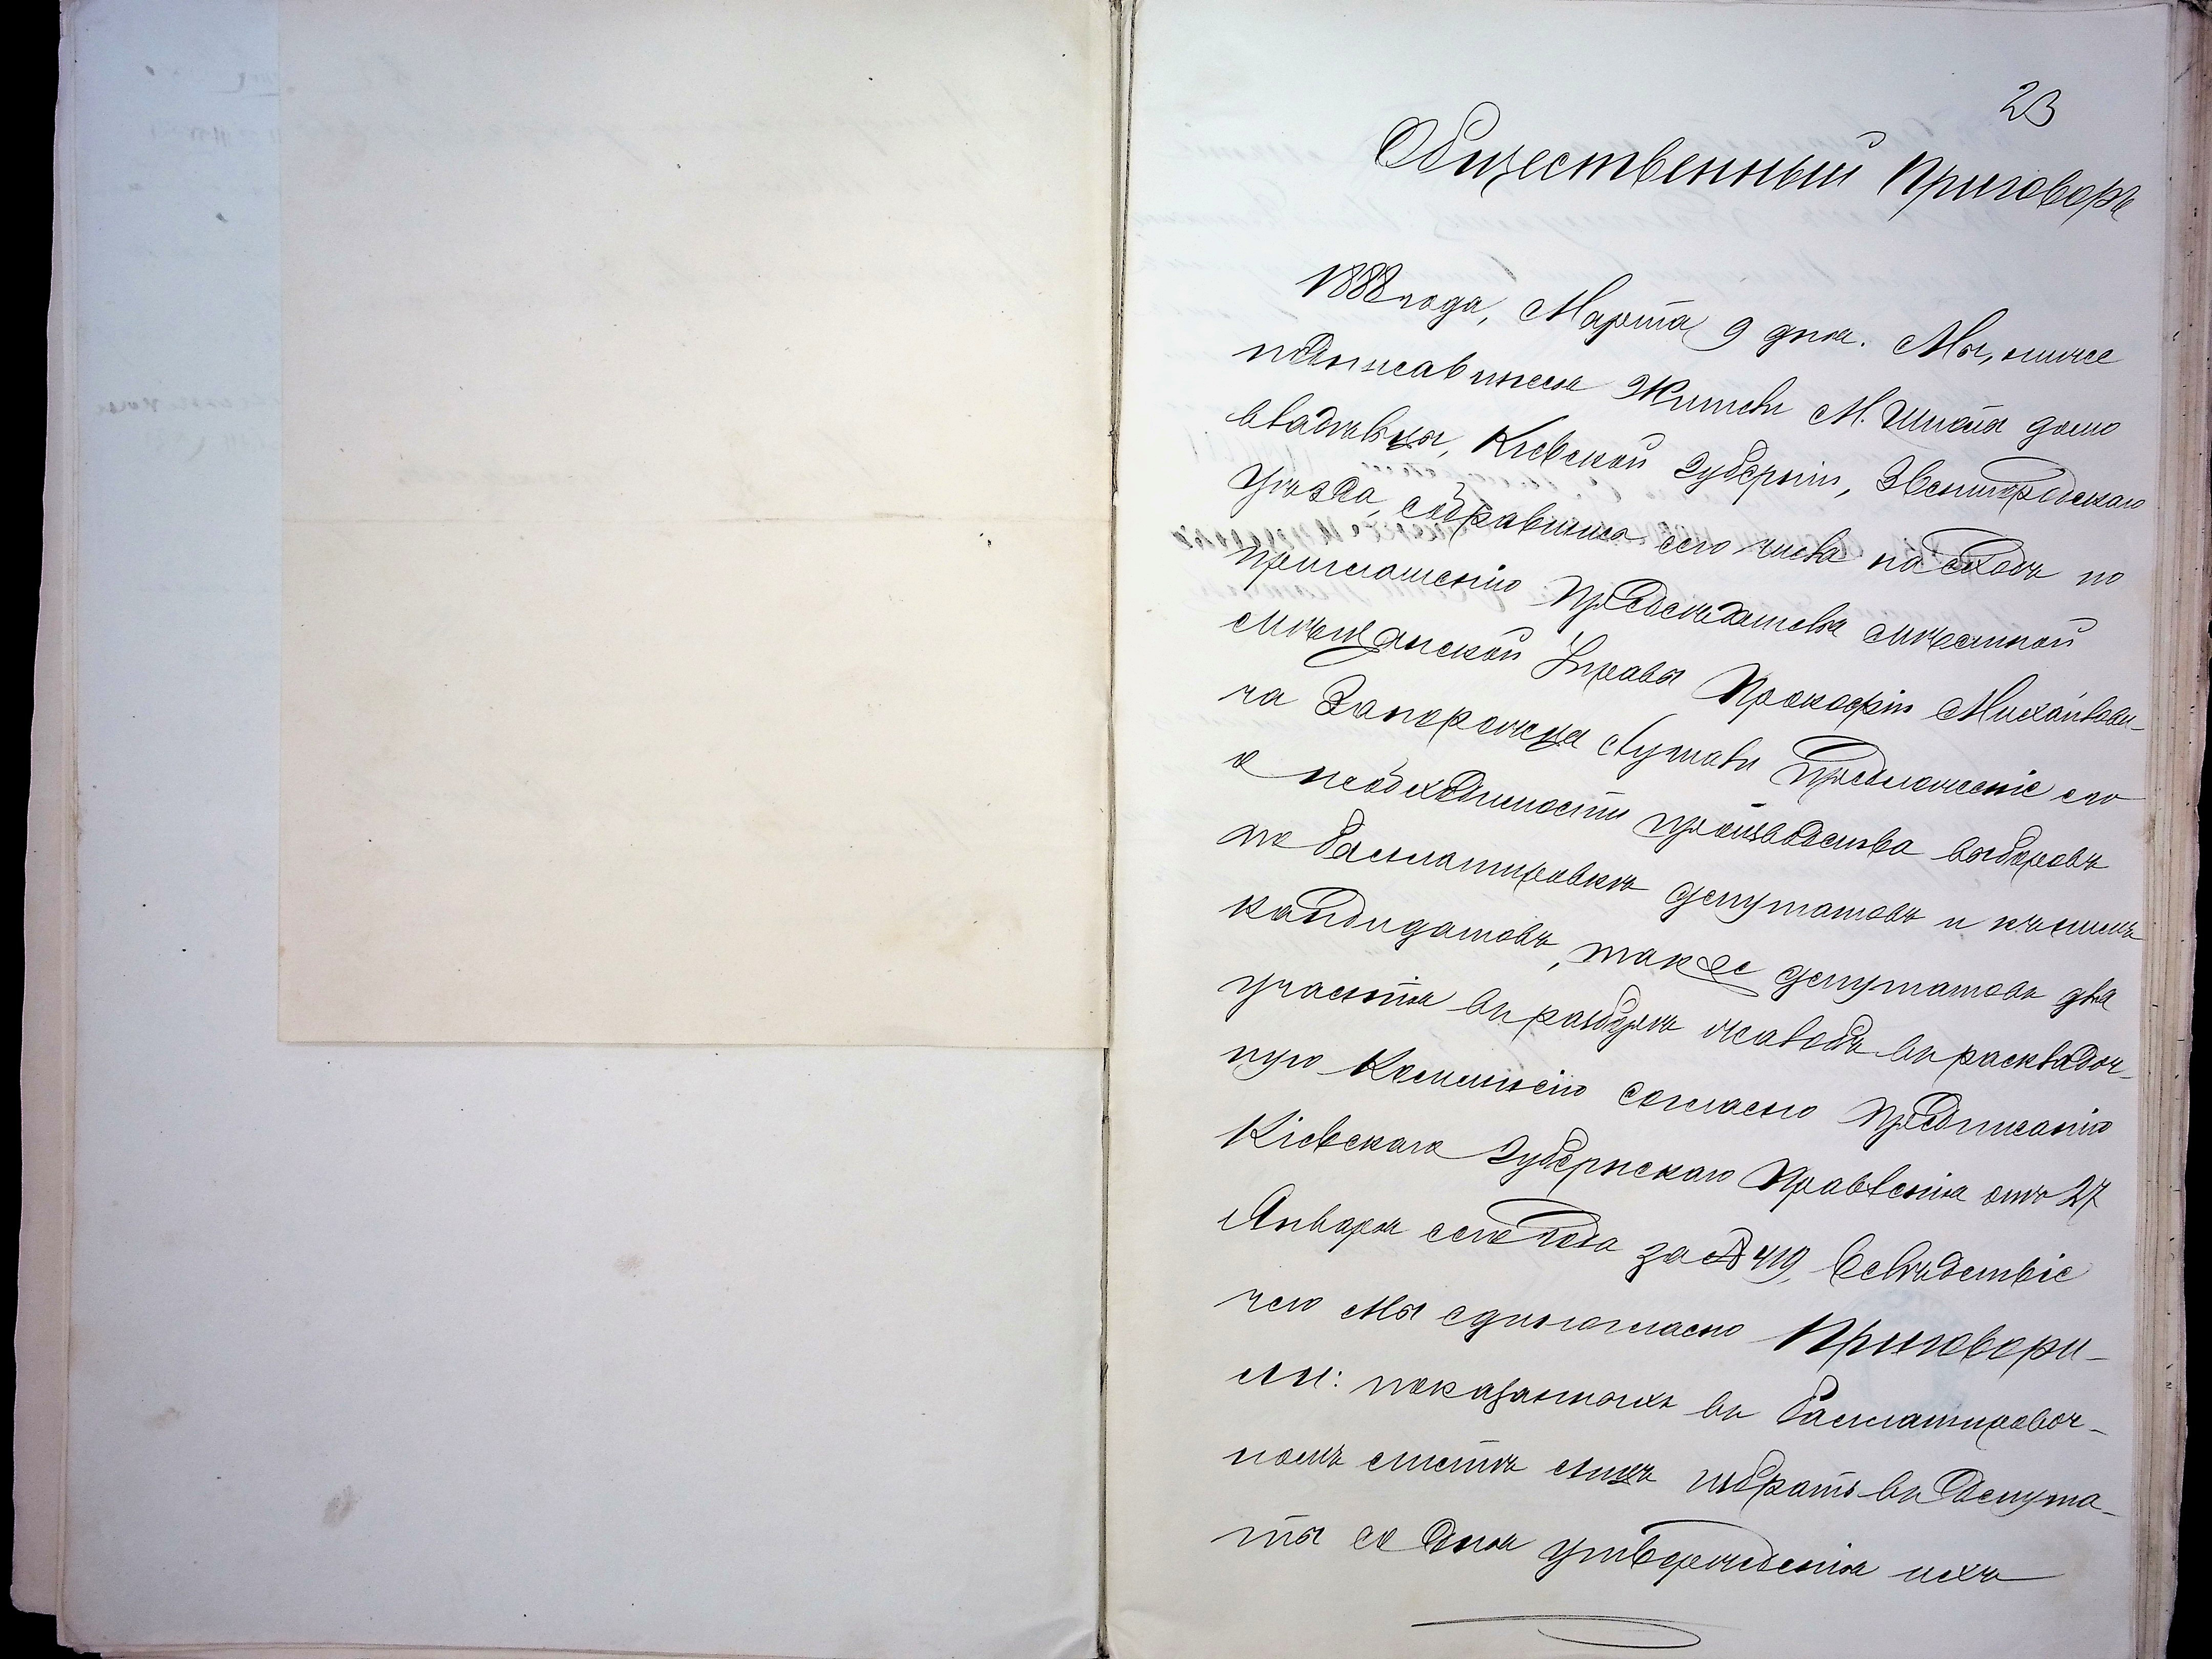 23
Общественный Приговоръ
1888 года, Марта 9 дня. Мы, ниже
подписавшіеся Жители М. Шпола домо
владѣльцы, Кіевской Губерніи, Звенигородскаго
уѣзда, собравшись сего числа на сходъ по
приглашенію Предсѣдателя мѣстной
мѣщанской Управы Прокофія Михайлови-
ча Запорожца слушали предложеніе его
о необходимости производства выборовъ
по баллатировкѣ депутатовъ и къ нимъ
кандидатовъ, также депутатовъ для
участія въ разборѣ жалобъ въ раскладоч-
ную Коммисію согласно предписанію
Кіевскаго Губернскаго Правленія отъ 27
Января сего года за № 419, вслѣдствіе
чего мы единогласно Приговори-
ли: показанныхъ въ баллатировоч-
номъ листѣ лицъ избрать въ депута-
ты со дня утвержденія ихъ